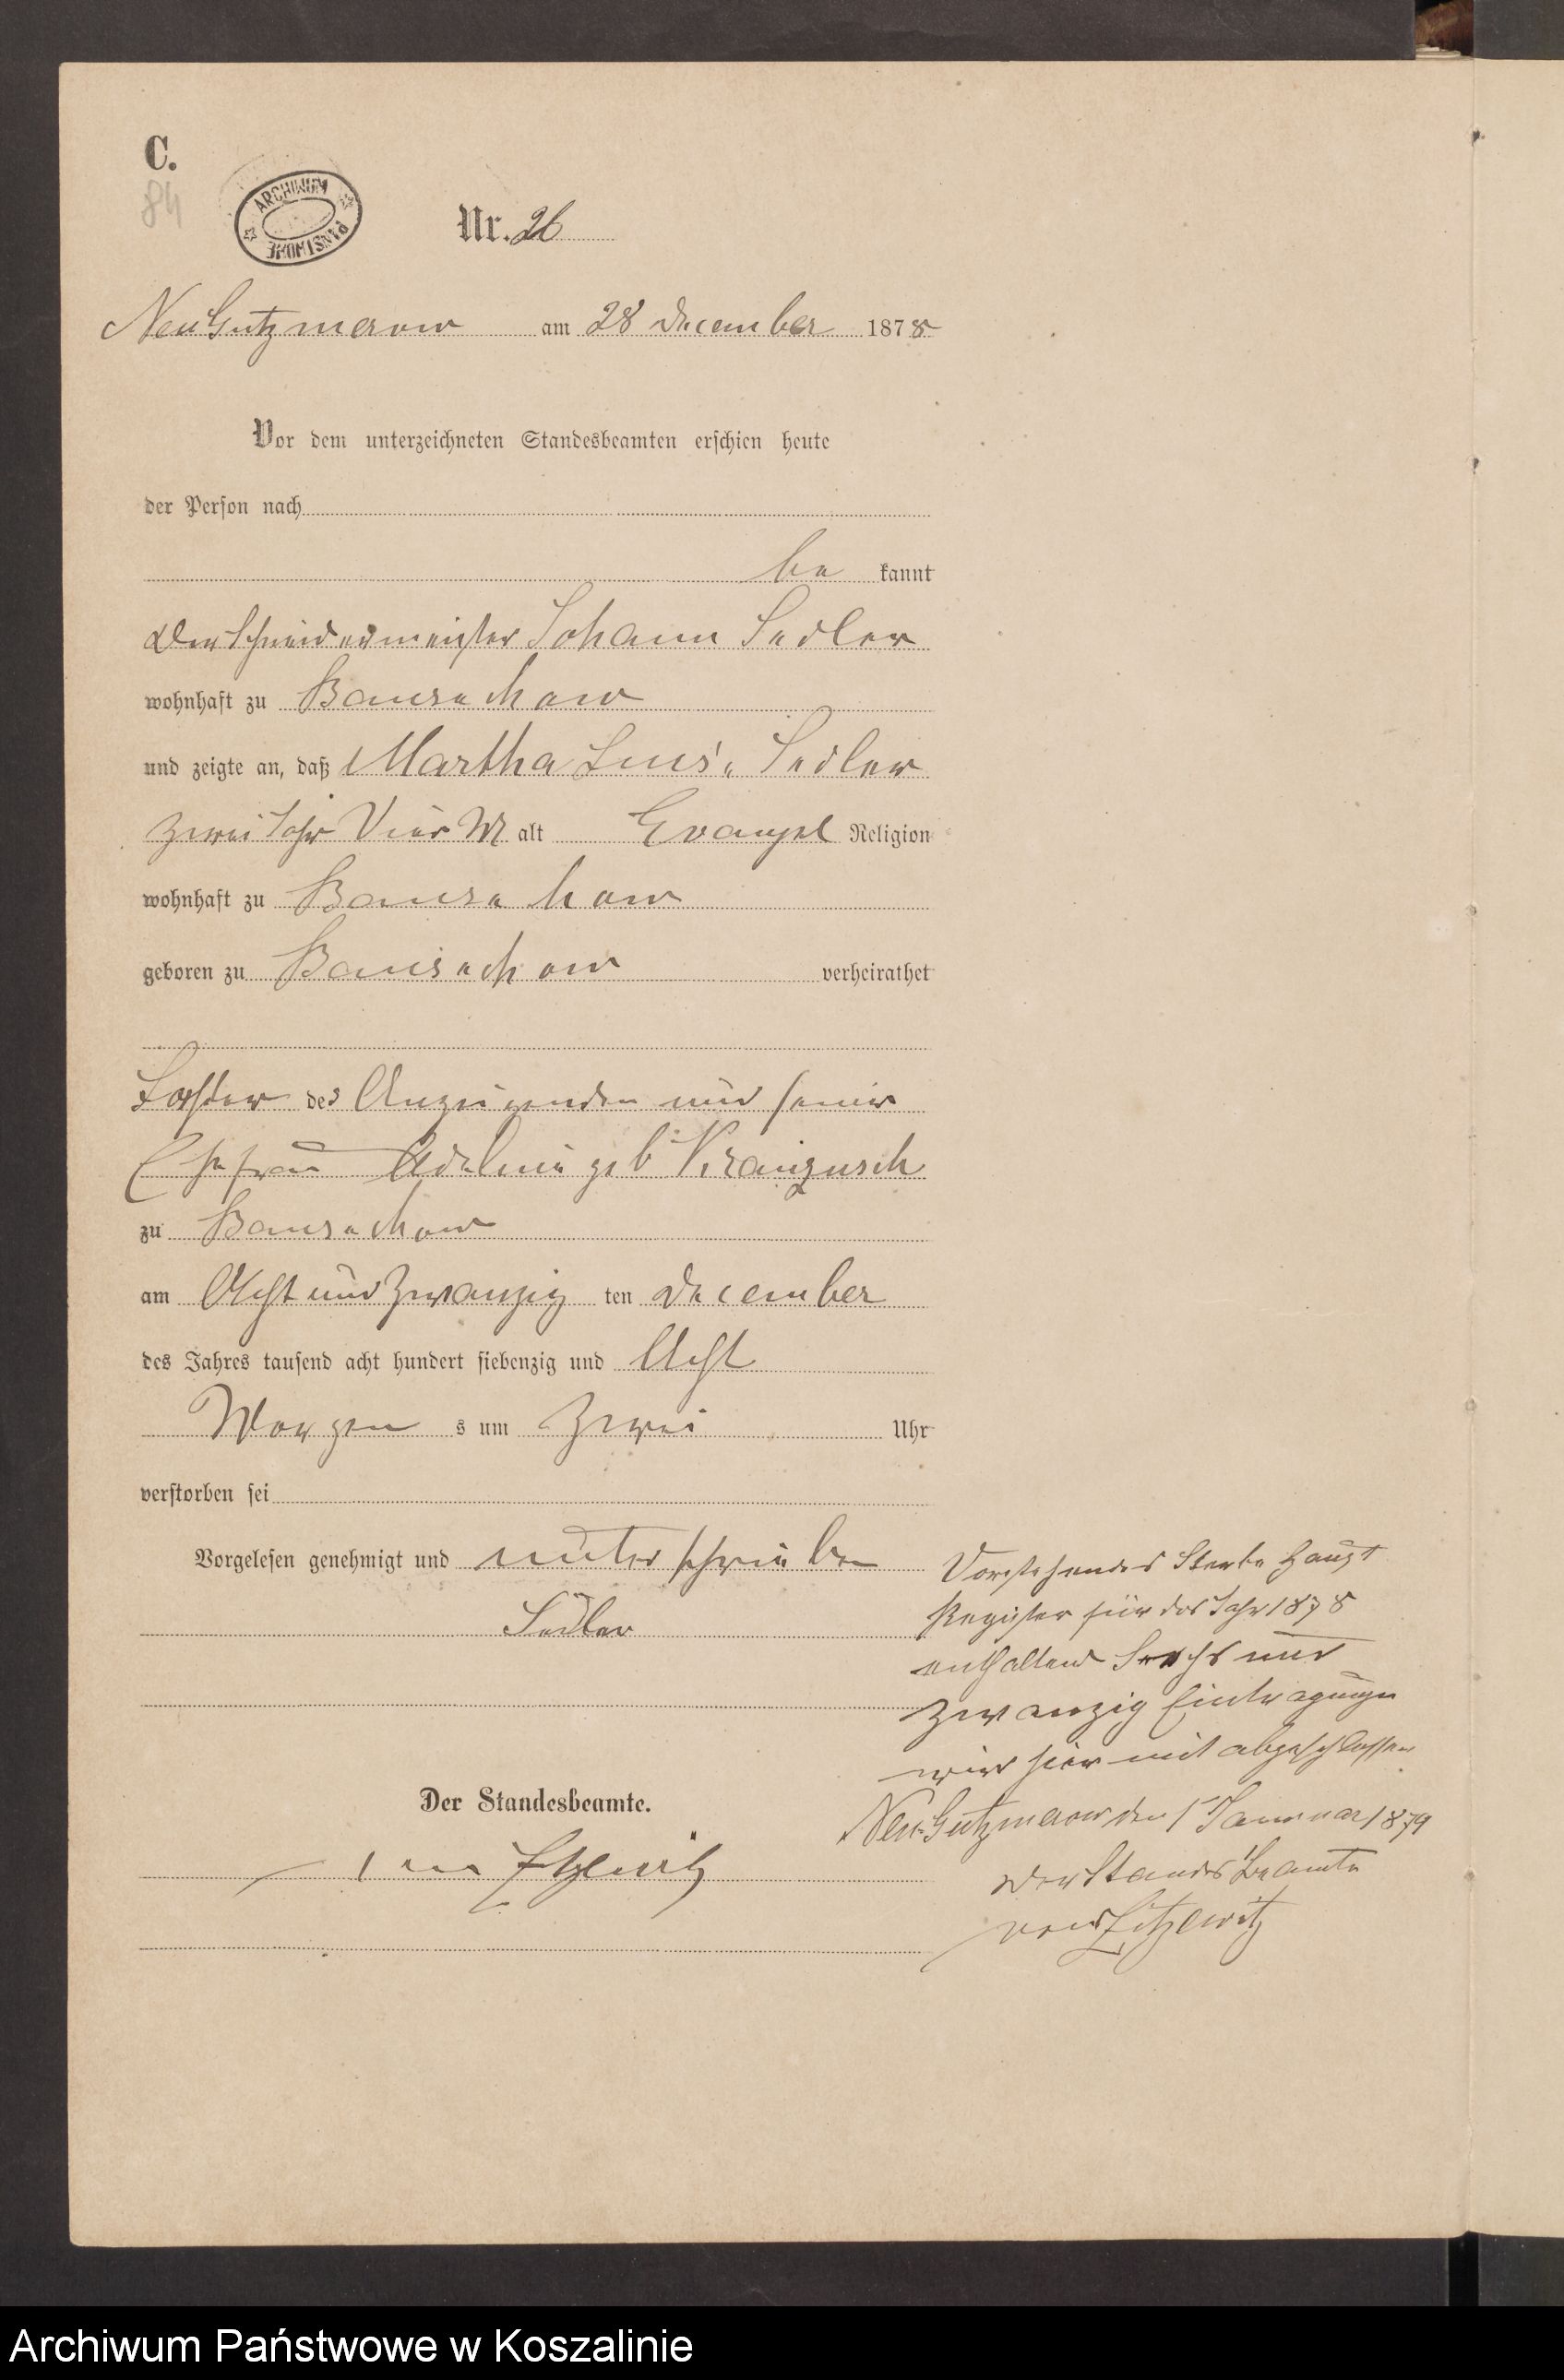 C.
84
ARCHIWUM PAŃSTWOWE
Nr. 26
Neu Gutzmerow am 28 December 1878
Vor dem unterzeichneten Standesbeamten erschien heute
der Person nach
be kannt
der Schneidermeister Johann Sedler
wohnhaft zu
und zeigte an, daß Martha Luise Sedler
zwei Jahr Vier M alt Evangel Religion
wohnhaft zu
geboren zu verheirathet
Tochter des Anzeigenden und seiner
Ehefrau geb
zu
am Acht und Zwanzig ten December
des Jahres tausend acht hundert siebenzig und Acht
Morgen s um Zwei Uhr
verstorben sei
Vorgelesen genehmigt und unterschrieben
Sedler
Der Standesbeamte.
von Zitzewitz
Vorstehendes Sterbe Haupt
Register für das Jahr 1878
enthaltend Sechs und
zwanzig Eintragungen
wird hier mit abgeschlossen
Neu-Gutzmerow den 1 Januar 1879
Der Standes Beamte
von Zitzewitz
Archiwum Państwowe w Koszalinie